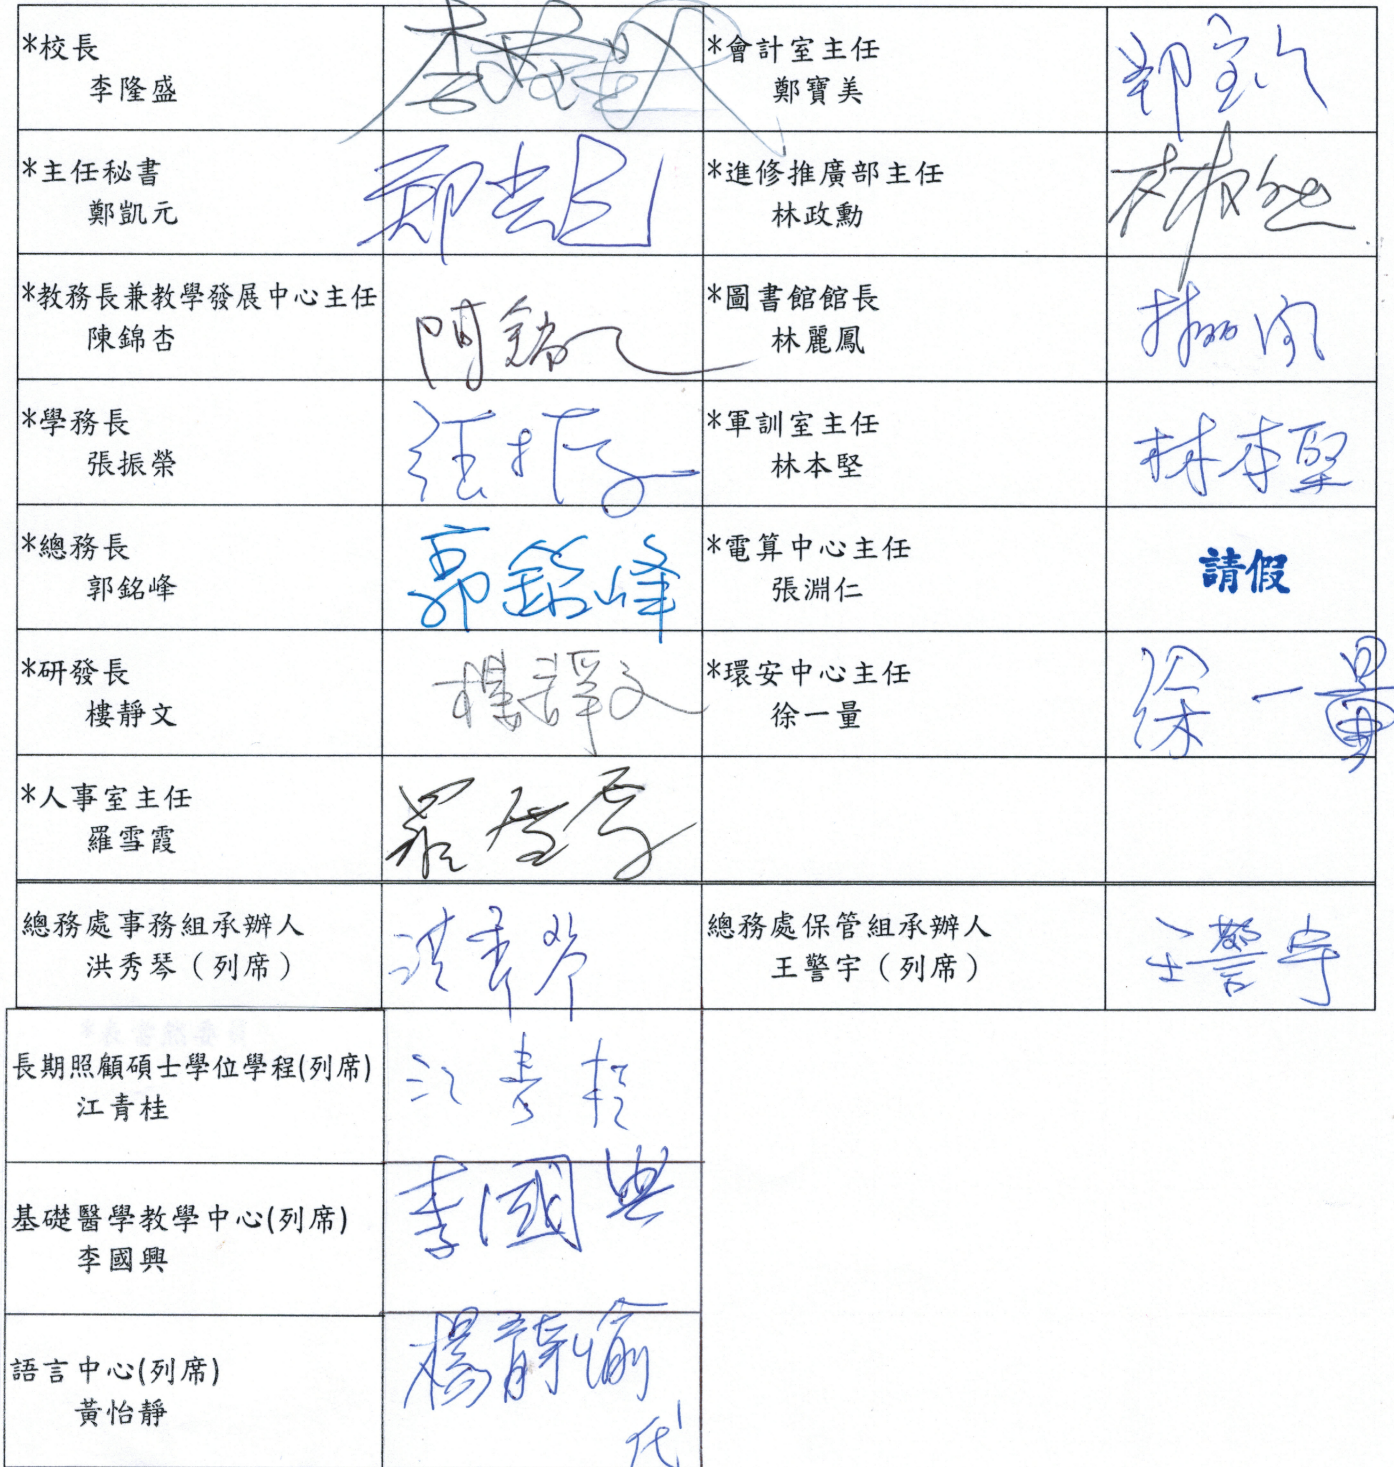 *校長
李隆盛
*會計室主任
鄭寶美
鄭宝
*主任秘書
鄭凱元
*進修推廣部主任
林政勳
*教務長兼教學發展中心主任
陳錦杏
陳錦
*圖書館館長
林麗鳳
*學務長
張振榮
*軍訓室主任
林本堅
林本堅
*總務長
郭銘峰
郭銘峰
*電算中心主任
張淵仁
請假
*研發長
樓靜文
樓靜文
*環安中心主任
徐一量
徐一量
*人事室主任
羅雪霞
總務處事務組承辦人
洪秀琴（列席）
洪秀琴
總務處保管組承辦人
王警宇（列席）
王警宇
長期照顧碩士學位學程(列席)
江青桂
江青桂
基礎醫學教學中心(列席)
李國興
李國興
語言中心(列席)
黃怡靜
楊靜愉
代